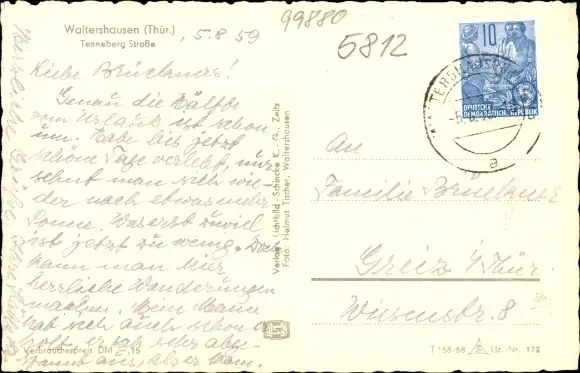 Waltershausen (Thür.)
Tenneberg Straße
, 5.8.59
99880
5812
Liebe Brückners!
Genau die Hälfte
vom Urlaub ist schon
um. Habe bis jetzt
schöne Tage verlebt, nur
sehnt man sich wie-
der nach etwas mehr
Sonne. Was erst zuviel
ist jetzt zu wenig. Dann
kann man hier
herrliche Wanderungen
machen. Mein Mann
hab ich auch schon
geholt, er sah sehr abge-
spannt aus, als er kam.
Herzliche Grüße
Verbraucherpreis DM -,15
Verlag: Lichtbild-Schincke K.-G., Zeitz
Foto: Helmut Tischer, Waltershausen
10
DEUTSCHE
DEMOKRATISCHE REPUBLIK
5
WALTERSHAUSEN
a
An
Familie Brückner
Greiz i/Thür.
Wiesenstr. 8
T 58-58
Liz.-Nr. 175